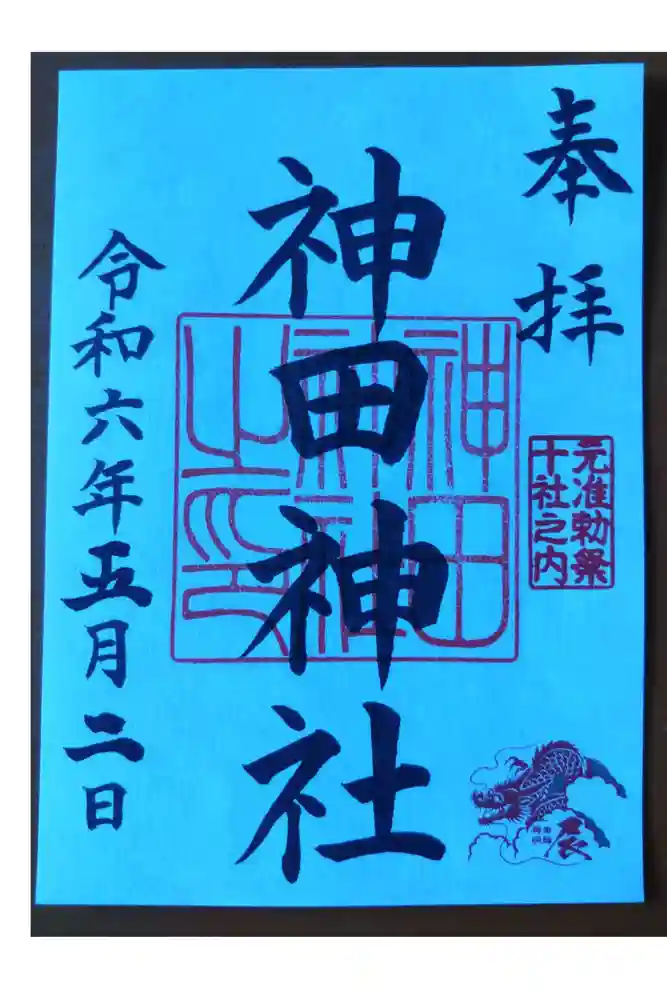 奉拝
元准勅祭
十社之内
神田神社
神田
神社
之印
辰
令和六年五月二日